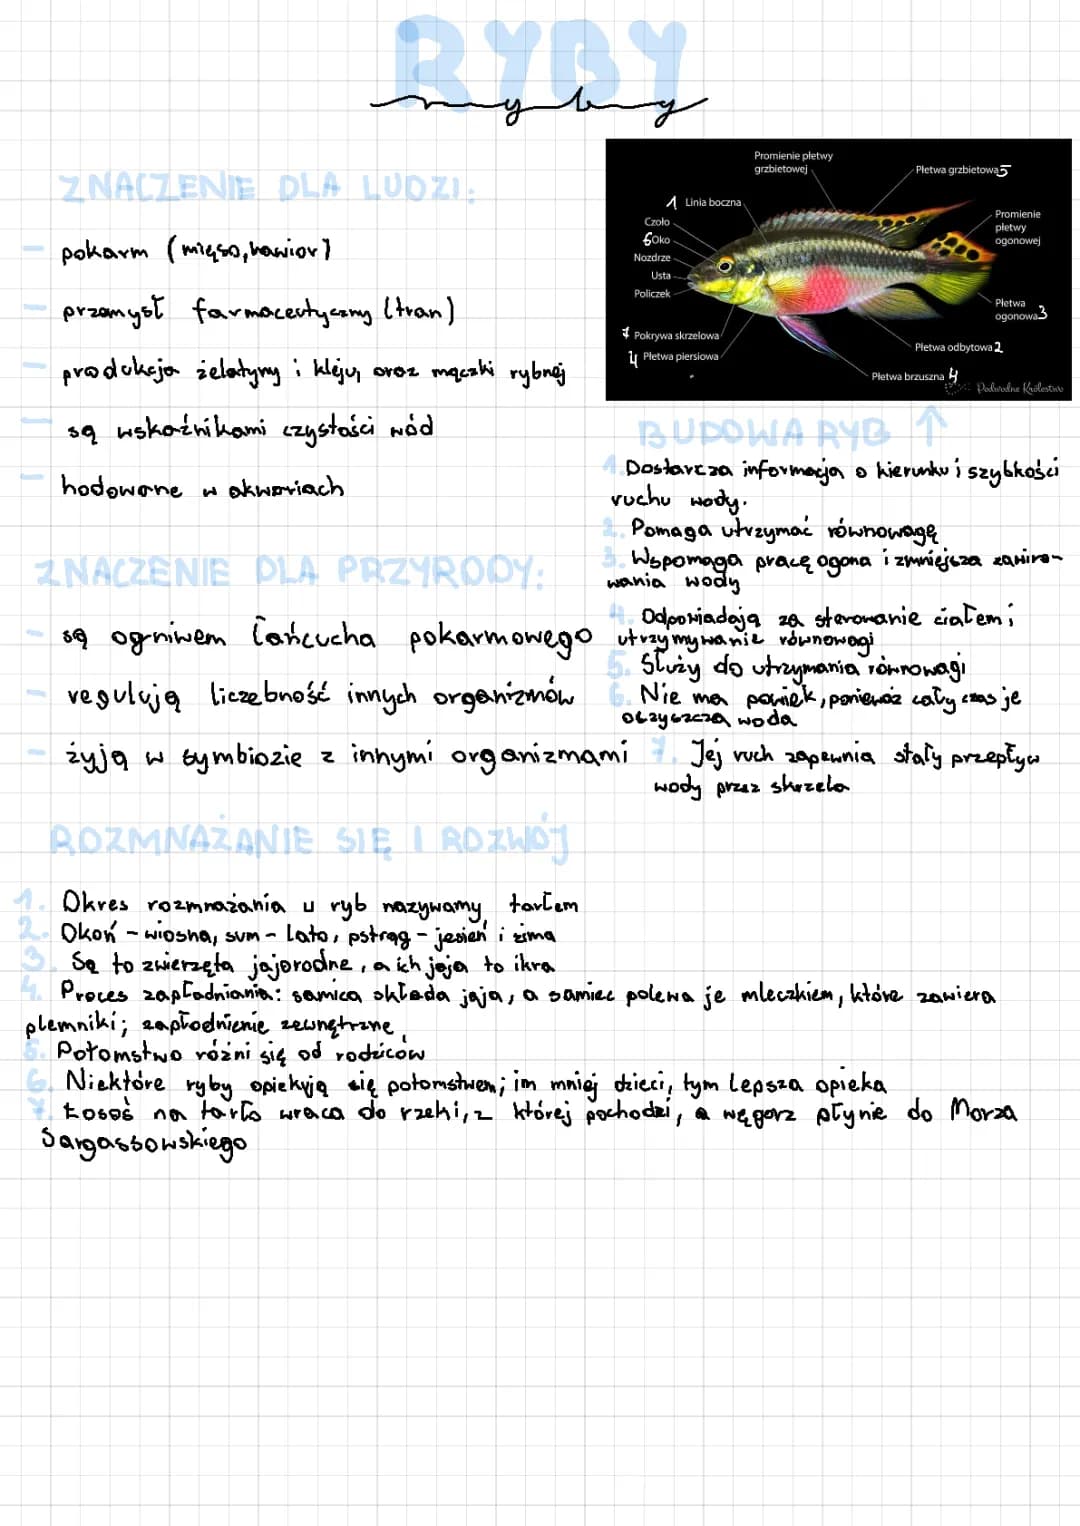 RYBY
ryby
ZNACZENIE DLA LUDZI:
- pokarm (mięso, kawior)
- przemysł farmaceutyczny (tran)
- produkcja żelatyny i kleju, oraz mączki rybnej
- są wskaźnikami czystości wód
- hodowane w akwariach
ZNACZENIE DLA PRZYRODY:
- są ogniwem łańcucha pokarmowego
- regulują liczebność innych organizmów
- żyją w symbiozie z innymi organizmami
Promienie płetwy
grzbietowej
Płetwa grzbietowa 5
1 Linia boczna
Czoło
6 Oko
Nozdrze
Usta
Policzek
Promienie
płetwy
ogonowej
Płetwa
ogonowa 3
7 Pokrywa skrzelowa
4 Płetwa piersiowa
Płetwa odbytowa 2
Płetwa brzuszna 4
Podwodne Królestwo
BUDOWA RYB ↑
1. Dostarcza informacja o kierunku i szybkości
ruchu wody.
2. Pomaga utrzymać równowagę
3. Wspomaga pracę ogona i zmniejsza zawiro-
wania wody
4. Odpowiadają za sterowanie ciałem i
utrzymywanie równowagi
5. Służy do utrzymania równowagi
6. Nie ma powiek, ponieważ cały czas je
oczyszcza woda
7. Jej ruch zapewnia stały przepływ
wody przez skrzela
ROZMNAŻANIE SIĘ I ROZWÓJ
1. Okres rozmnażania u ryb nazywamy tarłem
2. Okoń - wiosna, sum - lato, pstrąg - jesień i zima
3. Są to zwierzęta jajorodne, a ich jaja to ikra
4. Proces zapładniania: samica składa jaja, a samiec polewa je mleczkiem, które zawiera
plemniki; zapłodnienie zewnętrzne
5. Potomstwo różni się od rodziców
6. Niektóre ryby opiekują się potomstwem; im mniej dzieci, tym lepsza opieka
7. Łosoś na tarło wraca do rzeki, z której pochodzi, a węgorz płynie do Morza
Sargassowskiego